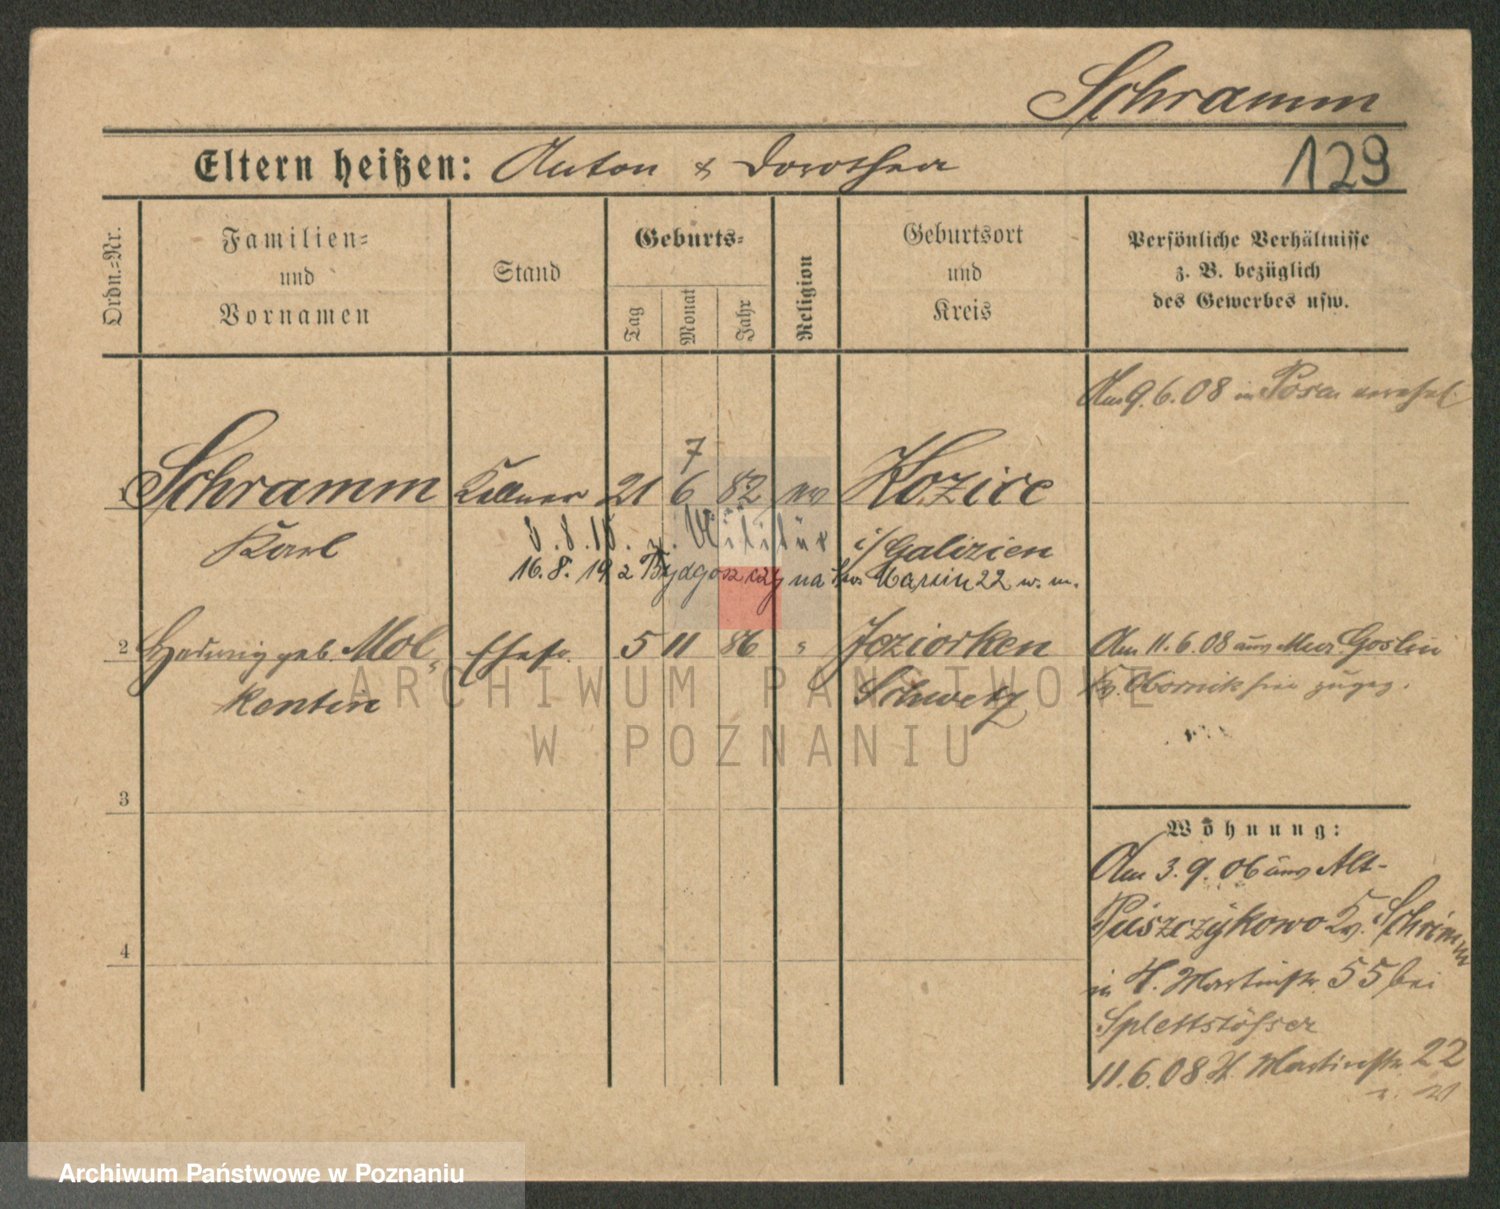 Schramm
129
Eltern heißen: Anton & Dorothea
Ordn.=Nr.
Familien=
und
Vornamen
Stand
Geburts=
Tag
Monat
Jahr
Religion
Geburtsort
und
Kreis
Persönliche Verhältnisse
z. B. bezüglich
des Gewerbes usw.
Am 9.6.08 in Posen verehel.
7
1 Schramm Kellner 21 6 82 Kozice
Karl i/Galizien
8.8.15. z. Militär
16.8.19 z Bydgoszczy na Św. Marcin 22 w. m.
2 Hedwig geb. Mol- Ehefr. 5 11 86 " Jeziorken
kentin Schwetz
Am 11.6.08 aus Mur. Goslin
Kr. Obornik hier zugez.
3
4
Wohnung:
Am 3.9.06 aus Alt-
Puszczykowo Kr. Schrimm
in St. Martinstr. 55 bei
Splettstößer
11.6.08 St. Martinstr. 22
ARCHIWUM PAŃSTWOWE
W POZNANIU
Archiwum Państwowe w Poznaniu